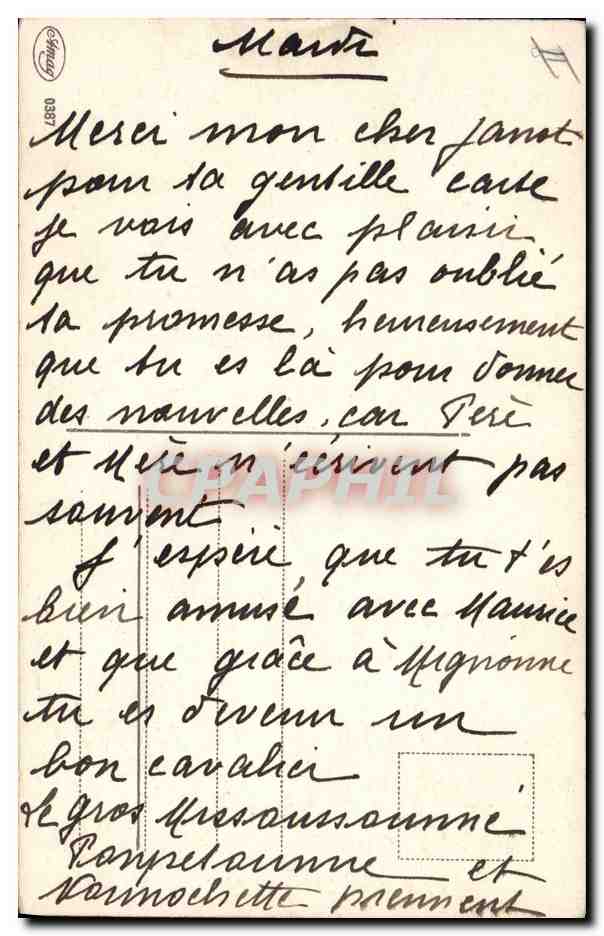 Amag
0387
II
Mardi
Merci mon cher Janot
pour ta gentille carte
je vois avec plaisir
que tu n'as pas oublié
ta promesse, heureusement
que tu es là pour donner
des nouvelles, car Père
et Mère n'écrivent pas
souvent
CPAPHIL
J'espère que tu t'es
bien amusé avec Maurice
et que grâce à Mignonne
tu es devenu un
bon cavalier
le gros
et
prennent